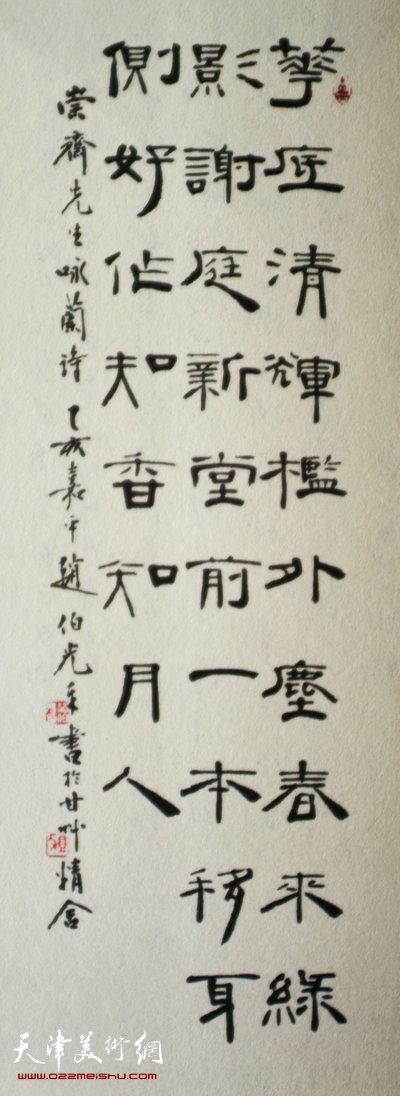 華庭清輝檻外塵春來綠
影謝庭新堂前一本移身
側好作知香知月人
崇齋先生咏蘭诗 丁亥嘉平趙伯光 書於甘州精舍
天津美術網
www.022meishu.com